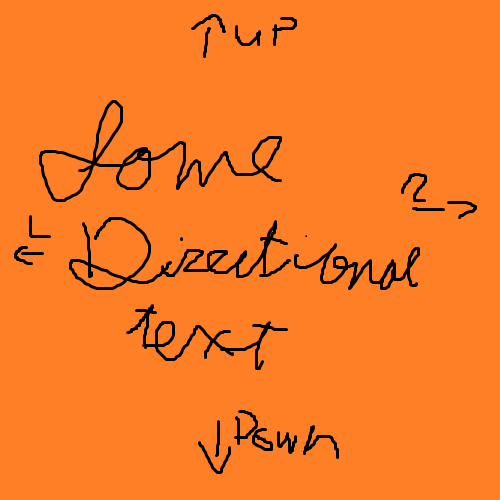 ↑ UP
Some
R →
← L
Directional
text
↓ Down